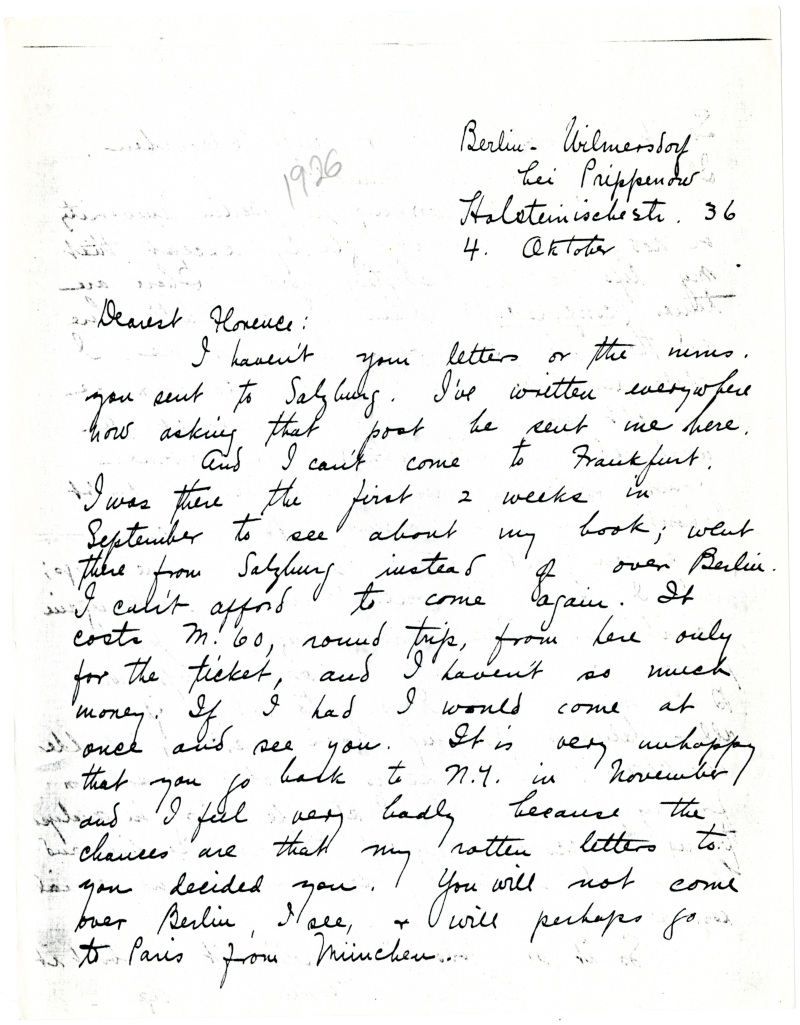 1926
Berlin-Wilmersdorf
bei Prippenow
Holsteinischestr. 36
4. Oktober
Dearest Florence:
I haven't your letters or the mms.
you sent to Salzburg. I've written everywhere
now asking that post be sent me here.
And I can't come to Frankfurt.
I was there the first 2 weeks in
September to see about my book; went
there from Salzburg instead of over Berlin.
I can't afford to come again. It
costs M. 60, round trip, from here only
for the ticket, and I haven't so much
money. If I had I would come at
once and see you. It is very unhappy
that you go back to N.Y. in November,
and I feel very badly because the
chances are that my rotten letters to
you decided you. You will not come
over Berlin, I see, + will perhaps go
to Paris from München.